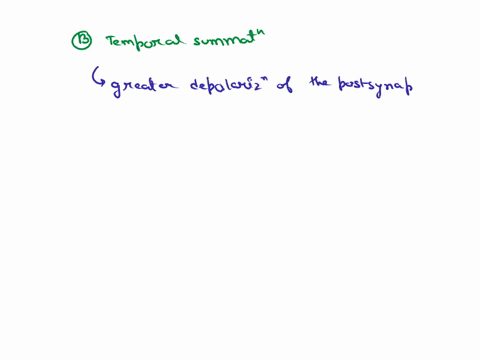 B Temporal summatⁿ
↳ greater depolarizⁿ of the postsynap